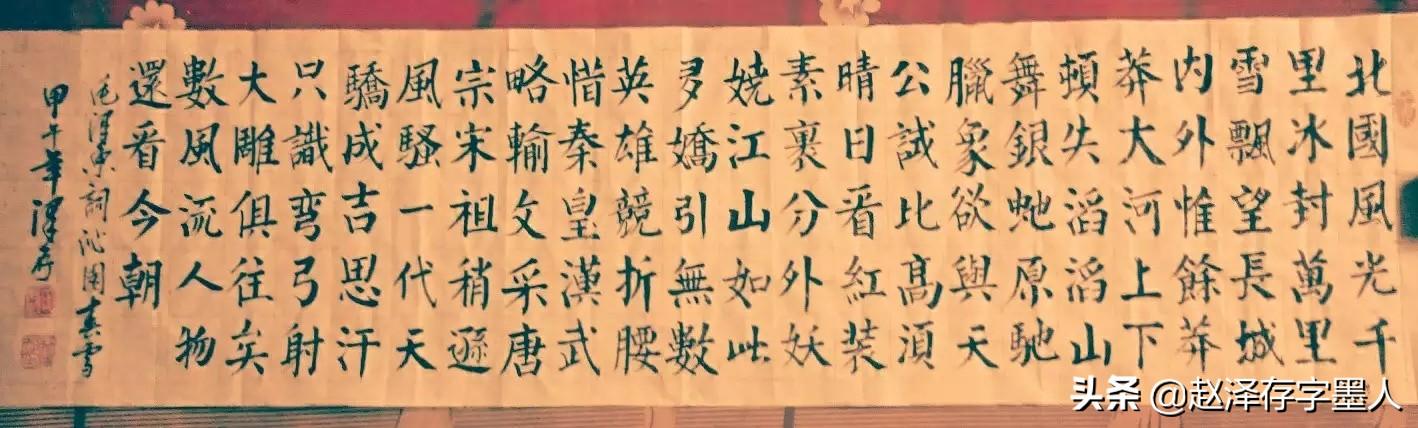 北國風光千
里冰封萬里
雪飄望長城
内外惟餘莽
莽大河上下
頓失滔滔山
舞銀虵原馳
臘象欲與天
公試比髙湏
晴日看紅装
素裹分外妖
嬈江山如此
多嬌引無數
英雄競折腰
惜秦皇漢武
略輸文采唐
宗宋祖稍遜
風騷一代天
驕成吉思汗
只識彎弓射
大雕俱往矣
數風流人物
還看今朝
毛澤東詞沁園春雪
甲午年澤存
头条 @赵泽存字墨人